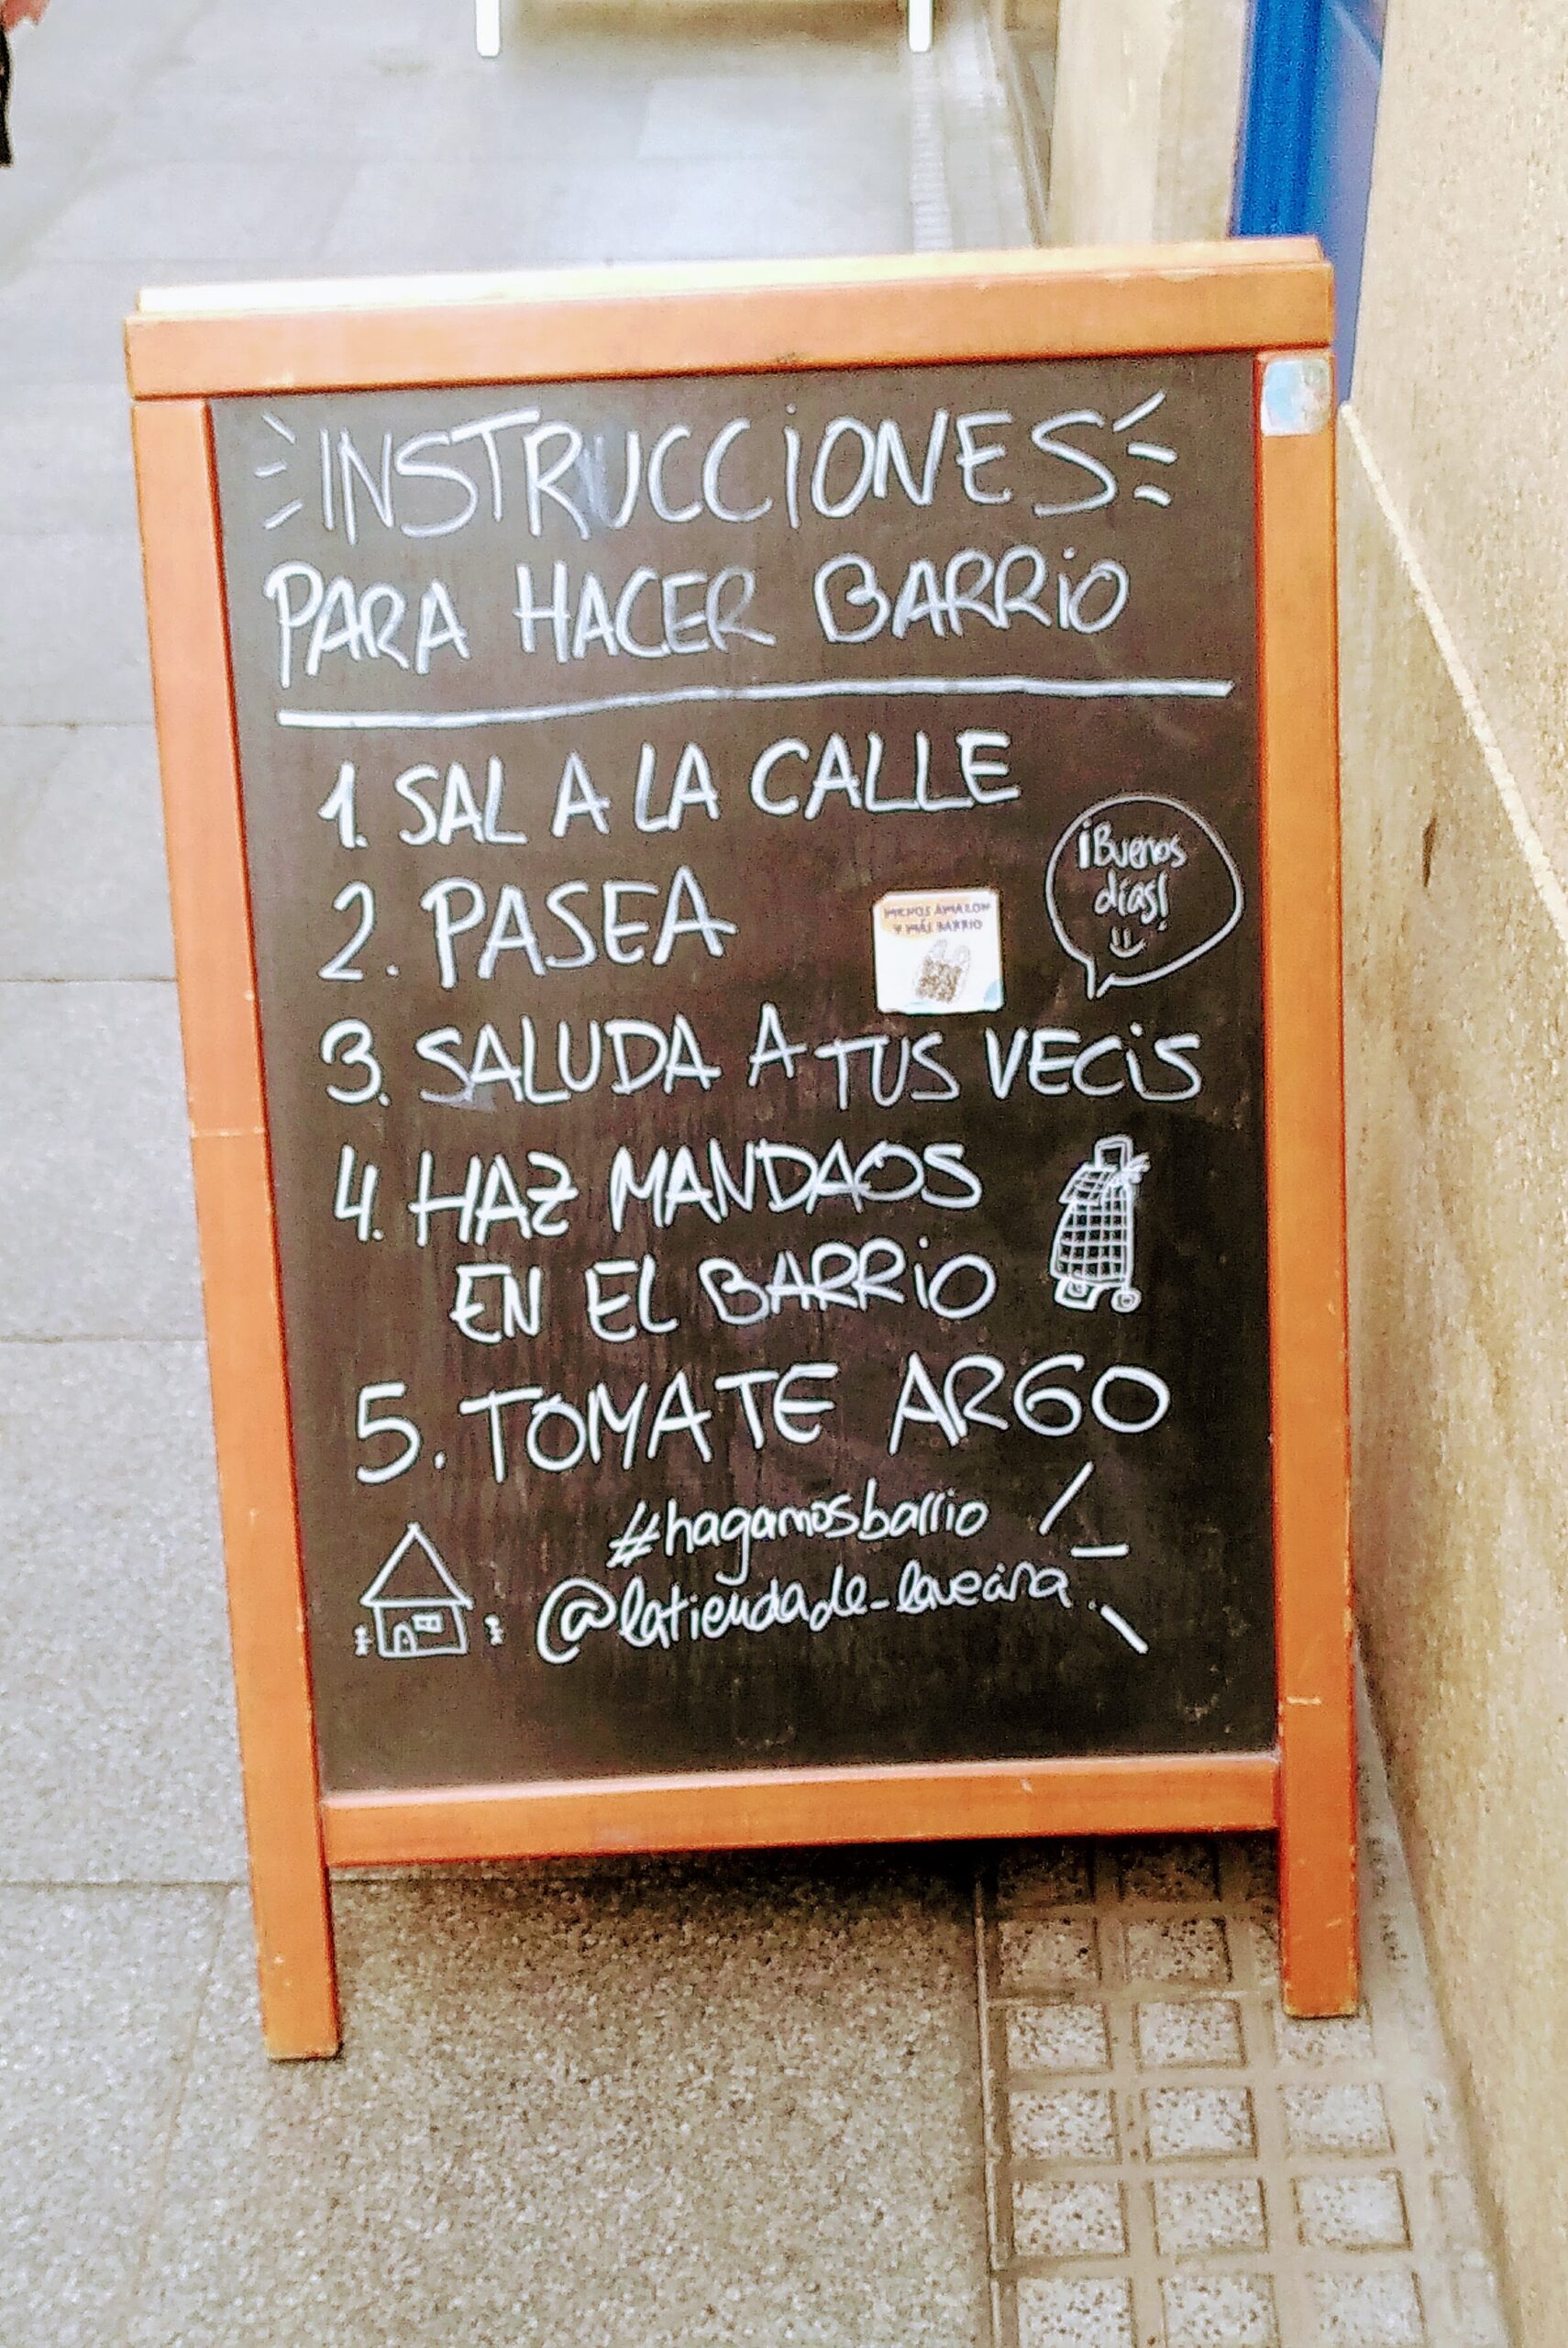 INSTRUCCIONES
PARA HACER BARRIO
1. SAL A LA CALLE
2. PASEA
¡Buenos
días!
MENOS AMAZON
Y MÁS BARRIO
3. SALUDA A TUS VECIS
4. HAZ MANDAOS
EN EL BARRIO
5. TOMATE ARGO
#hagamosbarrio
@latiendade_lavecina